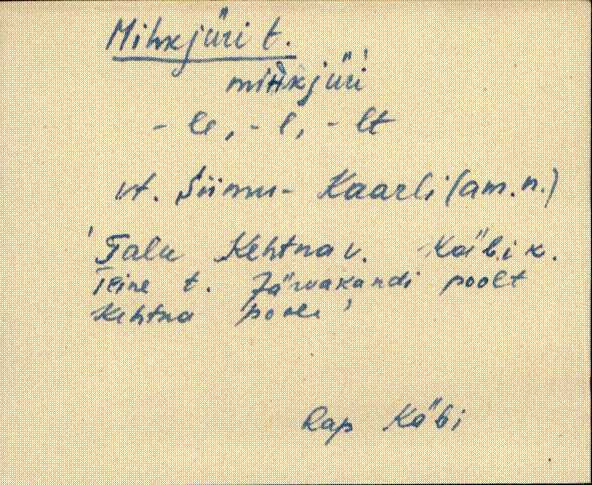 Mihkjüri t.
mihkjüri
- le, - l, - lt
vt. Siimu- Kaarli (am. n.)
'Talu Kehtna v. Käbi k.
Teine t. Järvakandi poolt
Kehtna poole'
Rap Käbi